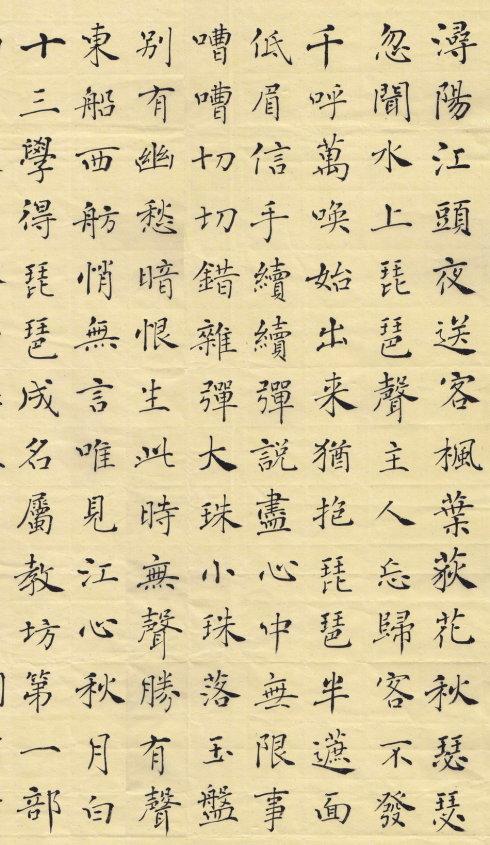 潯陽江頭夜送客楓葉荻花秋瑟瑟
忽聞水上琵琶聲主人忘歸客不發
千呼萬唤始出来猶抱琵琶半遮面
低眉信手續續彈説盡心中無限事
嘈嘈切切錯雜彈大珠小珠落玉盤
别有幽愁暗恨生此時無聲勝有聲
東船西舫悄無言唯見江心秋月白
十三學得琵琶成名屬教坊第一部